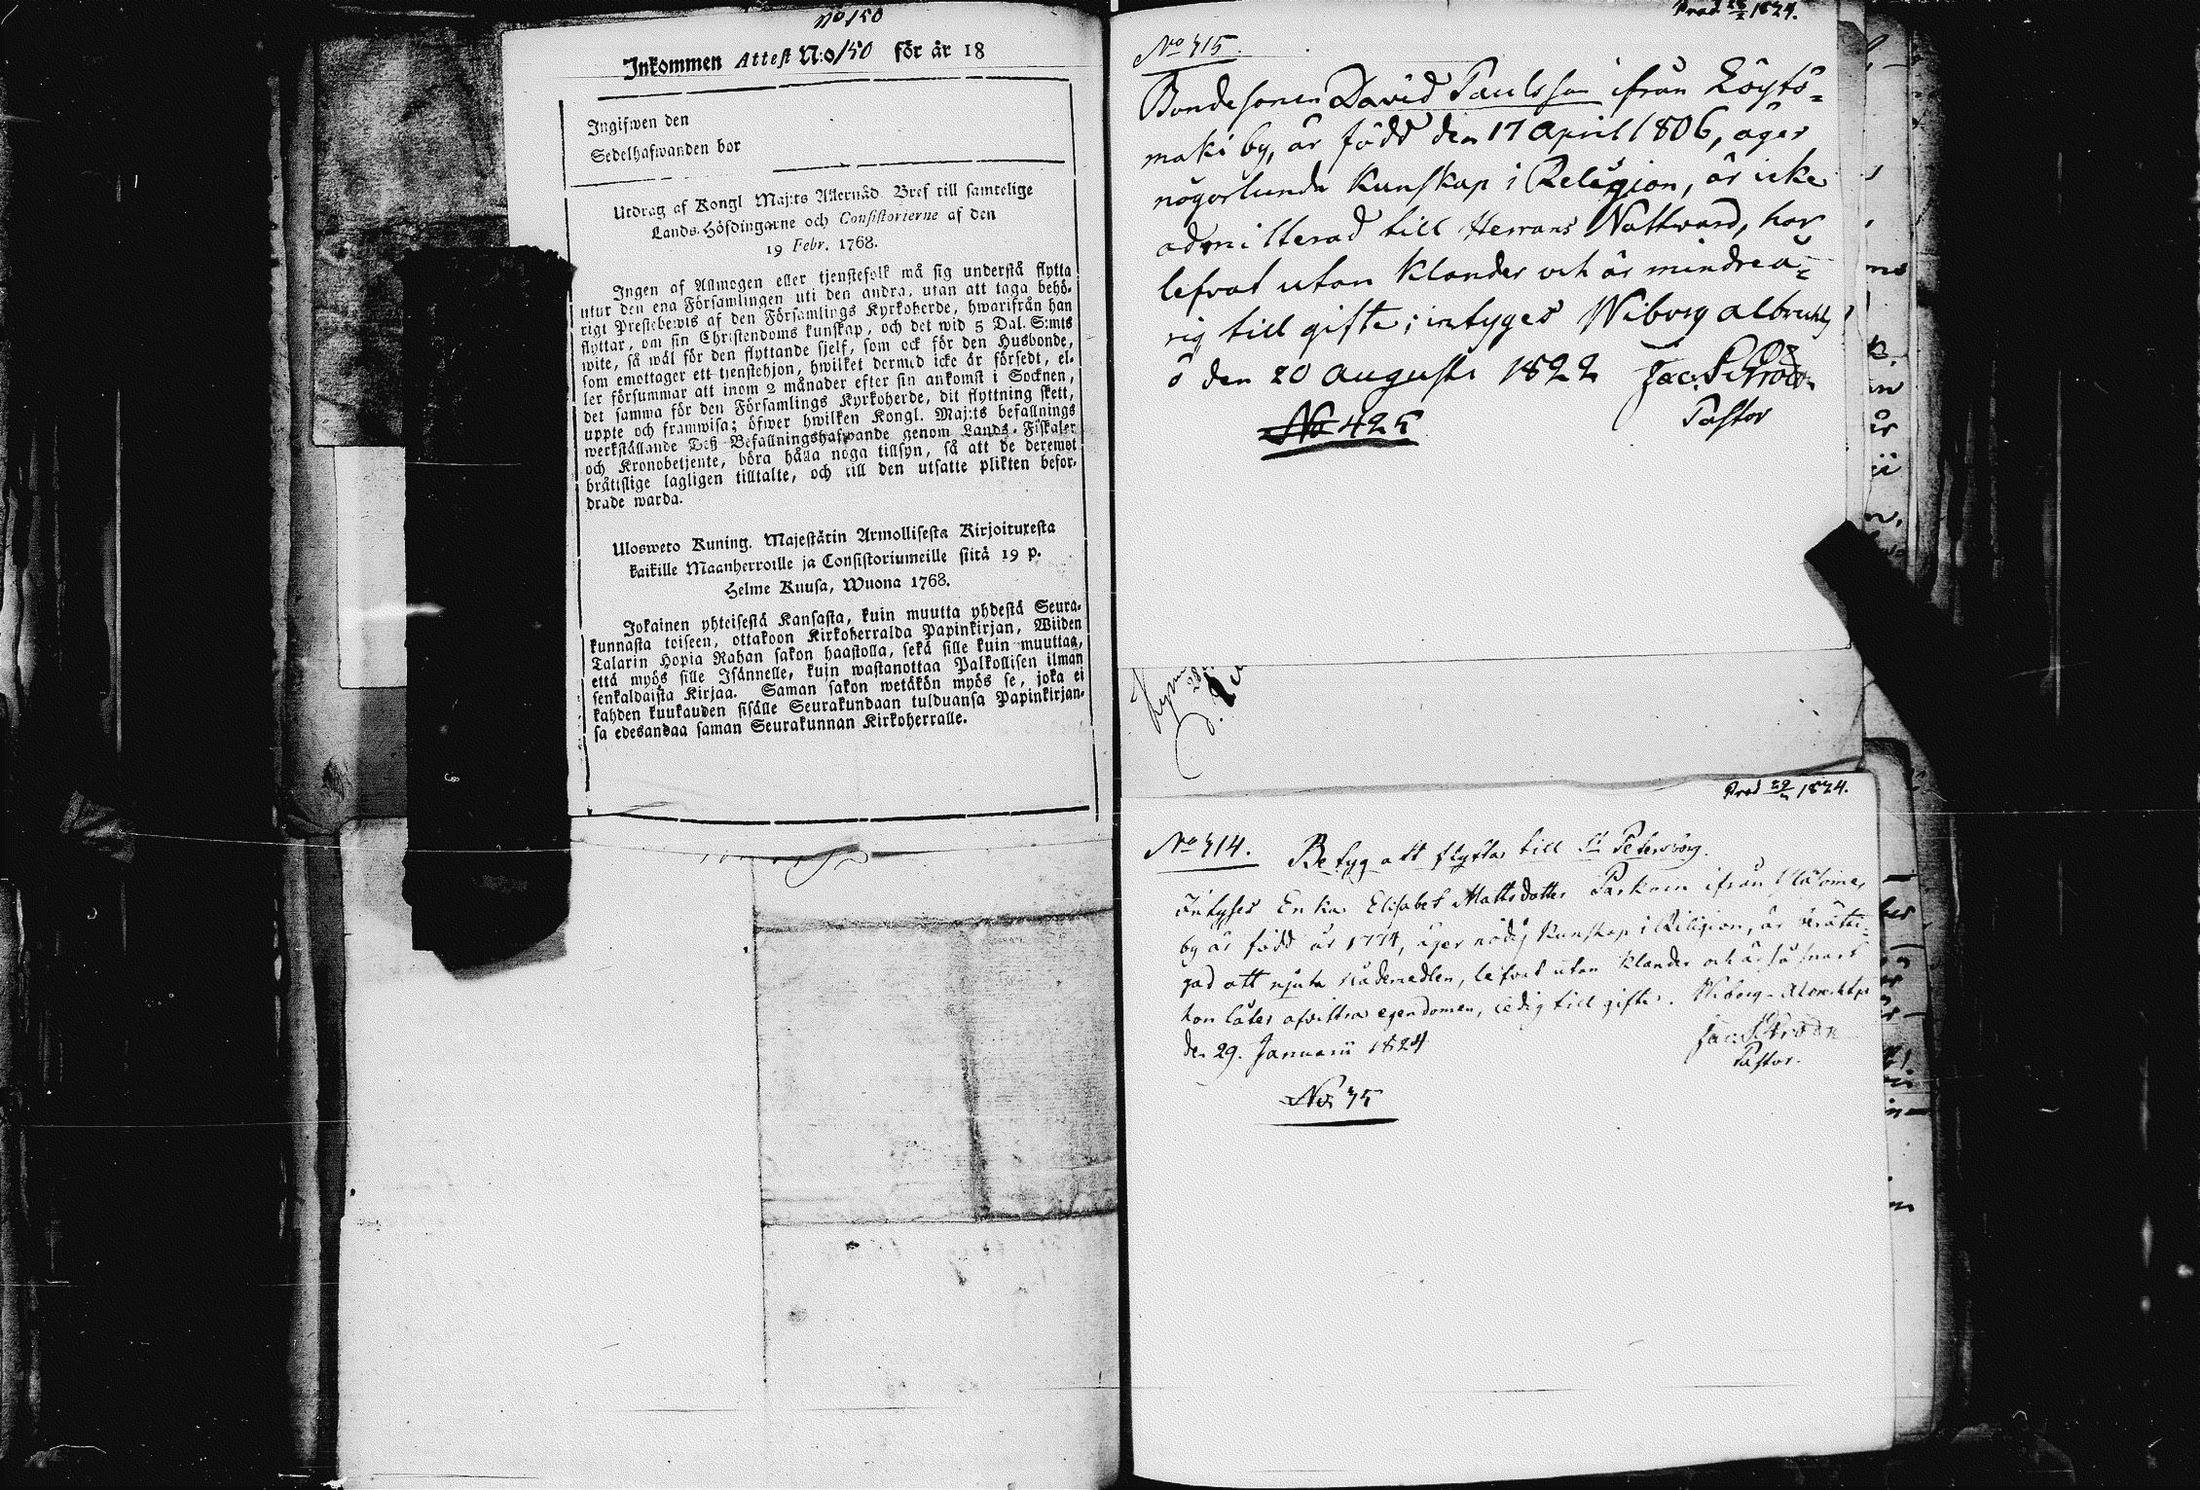 No 150
Inkommen Attest N:o 150 för år 18
Ingifwen den
Sedelhafwanden bor
Utdrag af Kongl Maj:ts Allernåd. Bref till samtelige
Lands-Höfdingarne och Consistorierne af den
19 Febr. 1768.
Ingen af Allmogen eller tjenstefolk må sig understå flytta
utur den ena Församlingen uti den andra, utan att taga behö-
rigt Prestebewis af den Församlings Kyrkoherde, hwarifrån han
flyttar, om sin Christendoms kunskap, och det wid 5 Dal. S:mts
wite, så wäl för den flyttande sjelf, som ock för den Husbonde,
som emottager ett tjenstehjon, hwilket dermed icke är försedt, el-
ler försummar att inom 2 månader efter sin ankomst i Socknen,
det samma för den Församlings Kyrkoherde, dit flyttning skett,
uppte och framwisa; öfwer hwilken Kongl. Maj:ts befallnings
werkställande Deß Befallningshafwande genom Lands-Fiskaler
och Kronobetjente, böra hålla noga tillsyn, så att de deremot
bråttslige lagligen tilltalte, och till den utsatte plikten befor-
drade warda.
Ulosweto Kuning. Majestätin Armollisesta Kirjoituxesta
kaikille Maanherroille ja Consistoriumeille siitä 19 p.
Helme Kuusa, Wuona 1768.
Jokainen yhteisestä Kansasta, kuin muutta yhdestä Seura-
kunnasta toiseen, ottakoon Kirkoherralda Papinkirjan, Wiiden
Talarin Hopia Rahan sakon haastolla, sekä sille kuin muuttaa,
että myös sille Isännelle, kuin wastanottaa Palkollisen ilman
senkaldaista Kirjaa. Saman sakon wetäkön myös se, joka ei
kahden kuukauden sisälle Seurakundaan tulduansa Papinkirjan-
sa edesandaa saman Seurakunnan Kirkoherralle.
Prod 28/2 1824.
No 415.
Bondesonen David Paulsson ifrån Löytö=
mäki by, är född den 17 April 1806, äger
någorlunda Kunskap i Religion, är icke
admitterad till Herrans Nattward, har
lefvat utan Klander och är minderå=
rig till gifte; intyges Wiborg
d den 20 Augusti 1822
Pastor
No 425
Prod 29/2 1824.
No 414. Betyg att flytta till St Petersborg.
Intyges Enkan Elisabet Mattsdotter ifrån
by är född år 1774, äger nödig Kunskap i Religion, är berätti=
gad att njuta nådemedlen, lefvat utan Klander och är så snart
hon låter afwittra egendomen, ledig till gifte. Wiborg
den 29. Januarii 1824
Pastor.
No 35